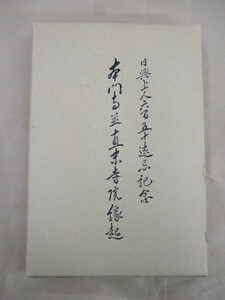 日興上人六百五十遠忌記念
本門寺並直末寺院縁起